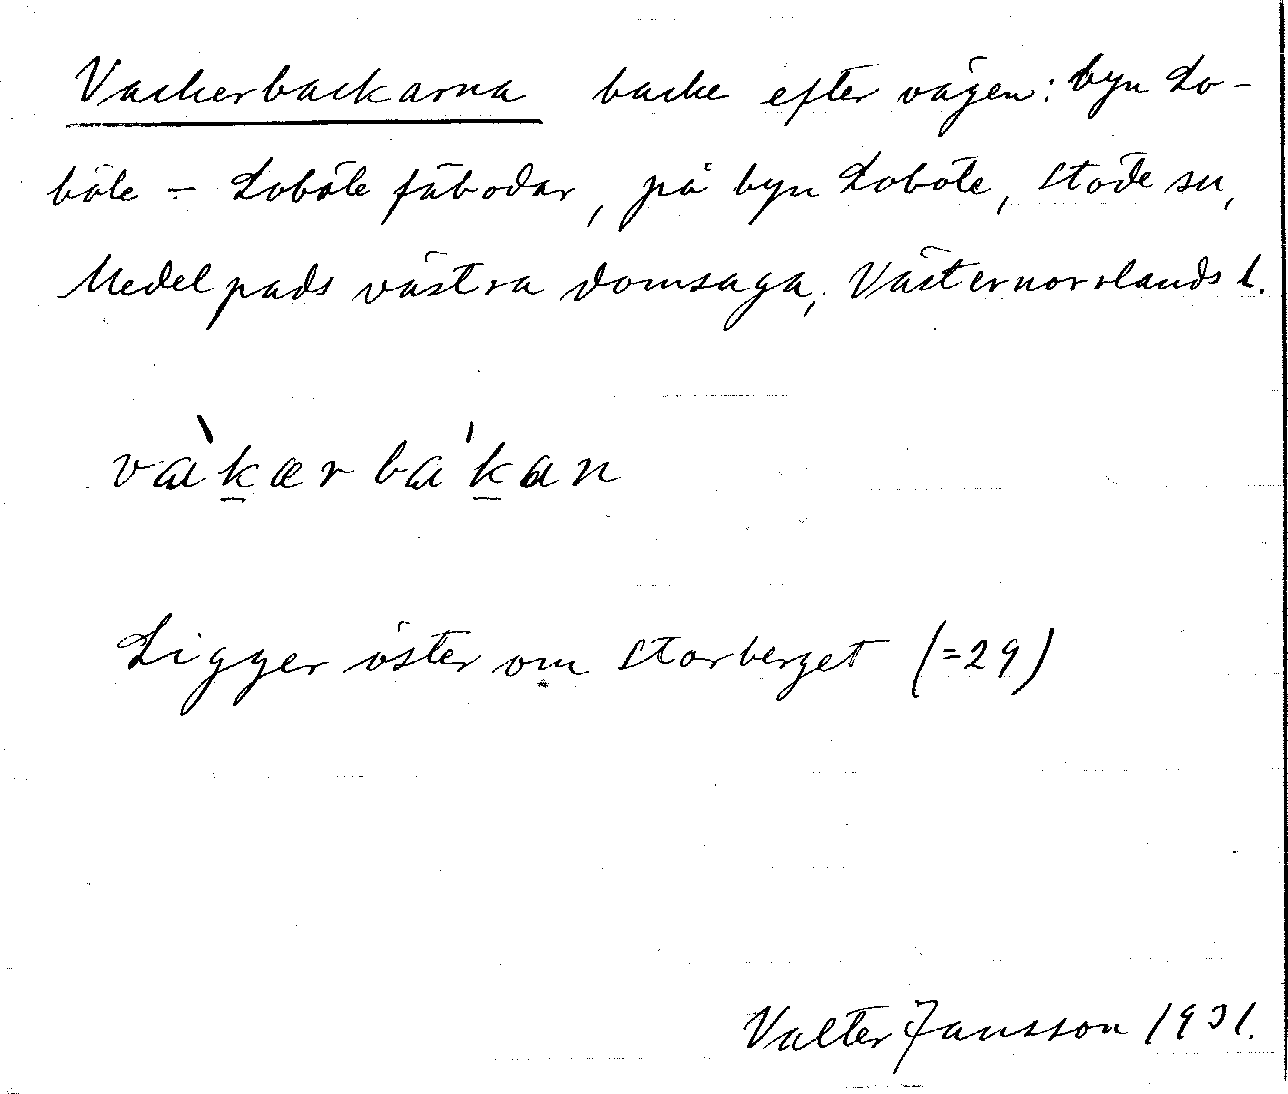 Vackerbackarna backe efter vägen: byn Lo-
böle - Loböle fäbodar, på byn Loböle, Stöde sn,
Medelpads västra domsaga, Västernorrlands l.
vàkærbákan
Ligger öster om Storberget (=29)
Valter Jansson 1931.